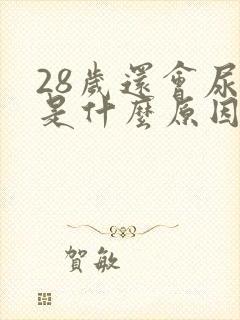 28歲還會尿
是什麼原因
賀敏